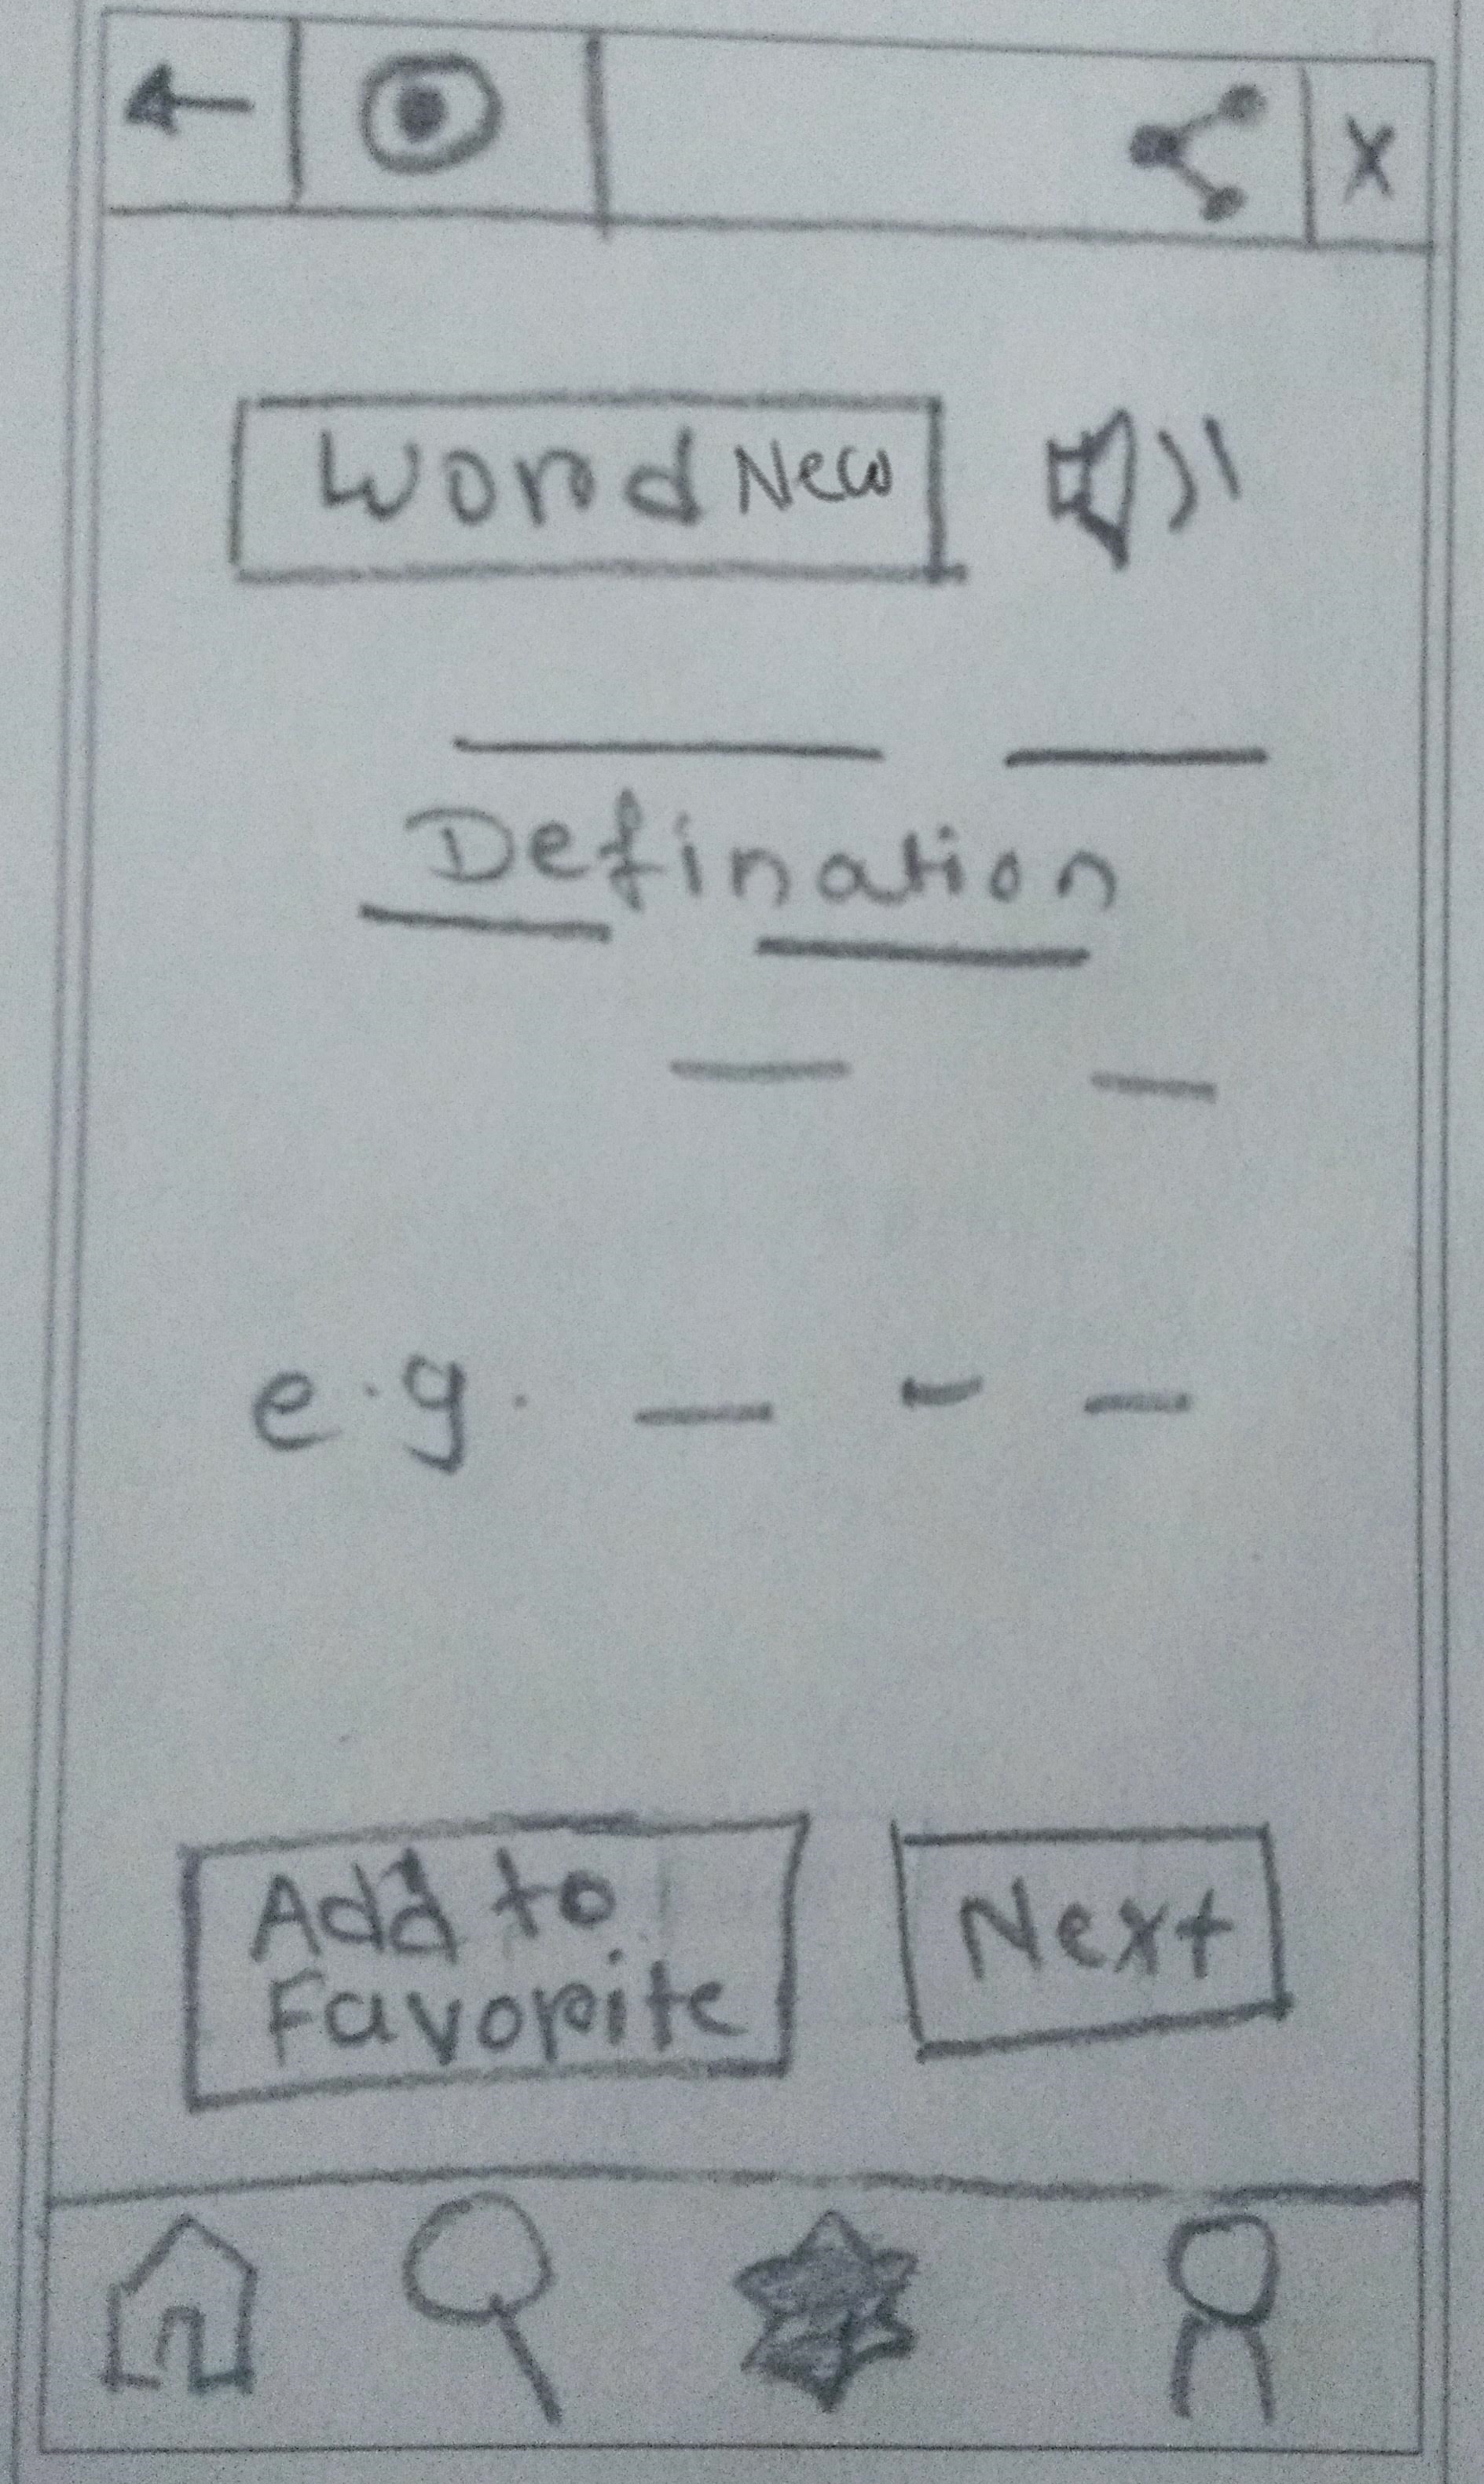 X
Word New
Defination
e.g.
Add to
Favorite
Next